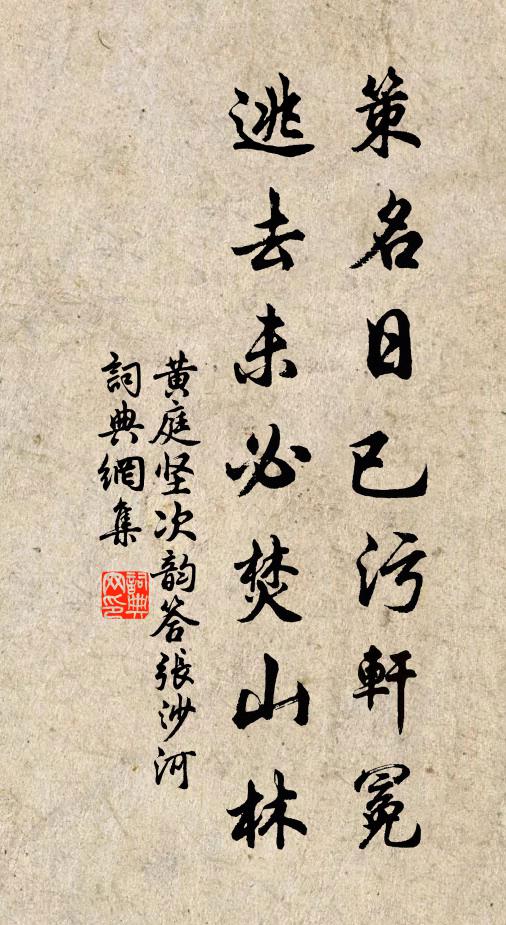 策名日已污軒冕
逃去未必焚山林
黄庭坚次韵答張沙河
詞典網集
詞典网印